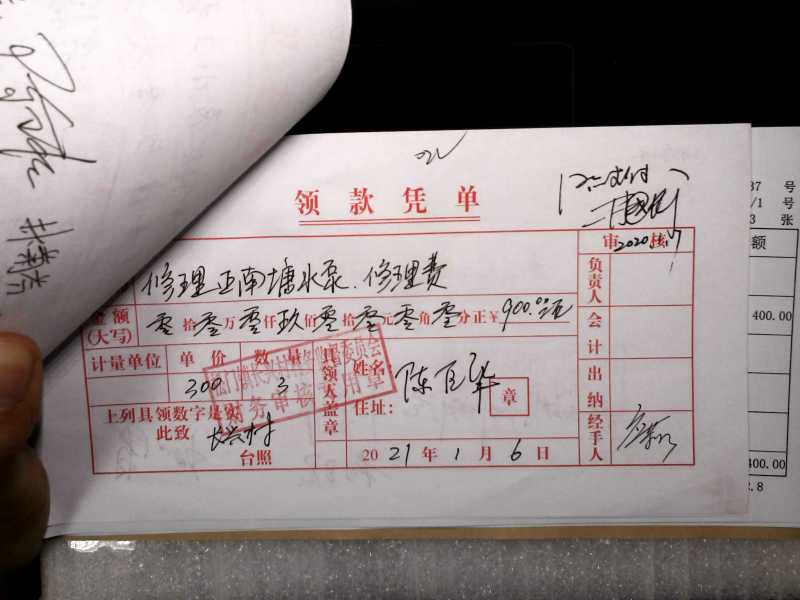 领款凭单
同意支付
2020.1.7
审核
修理正南塘水泵.修理费
金额
(大写)
零拾零万零仟玖佰零拾零元零角零分正¥900.00元
计量单位 单价 数量
300 3
上列具领数字是实
此致 长兴村
台照
具领人盖章
姓名: 陈百华
住址:
章
2021年1月6日
负责人
会计
出纳
经手人
财务审核专用章
37 号
/1 号
3 张
额
400.00
400.00
2.8